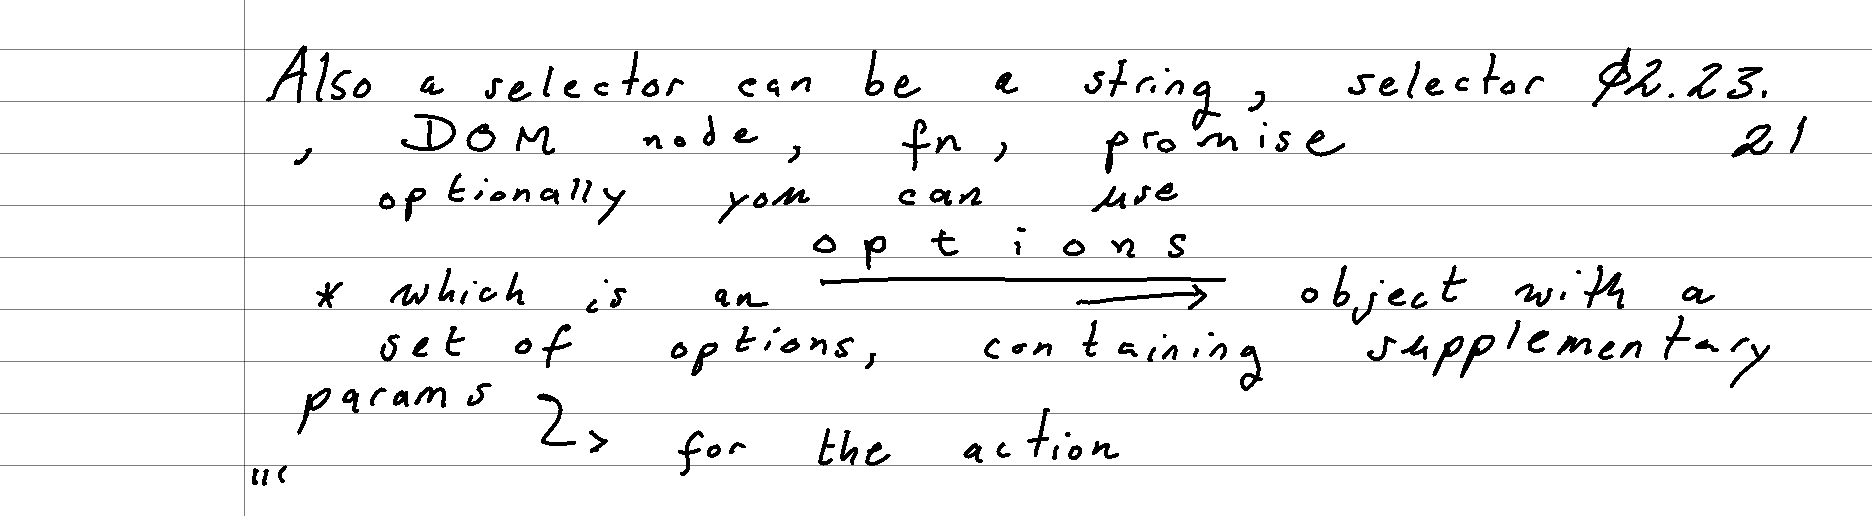 Also a selector can be a string, selector $2.23.
, DOM node, fn, promise 21
optionally you can use
options
* which is an → object with a
set of options, containing supplementary
params
→ for the action